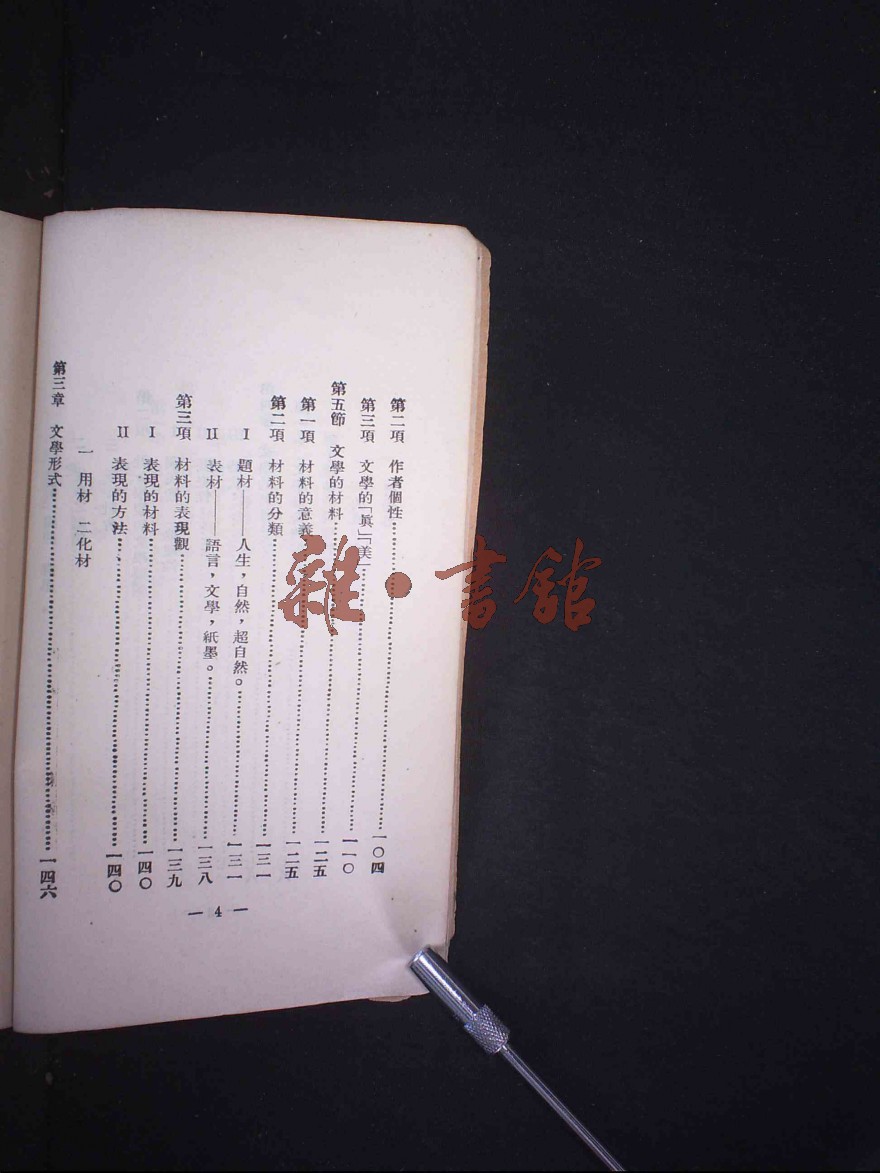 第二項 作者個性……一〇四
第三項 文學的「眞」「美」……一一〇
第五節 文學的材料……一二五
第一項 材料的意義……一二五
第二項 材料的分類……一三一
I 題材——人生，自然，超自然。……一三一
II 表材——語言，文學，紙墨。……一三八
第三項 材料的表現觀……一三九
I 表現的材料……一四〇
II 表現的方法……一四〇
一 用材 二化材
第三章 文學形式……一四六
— 4 —
雜·書館